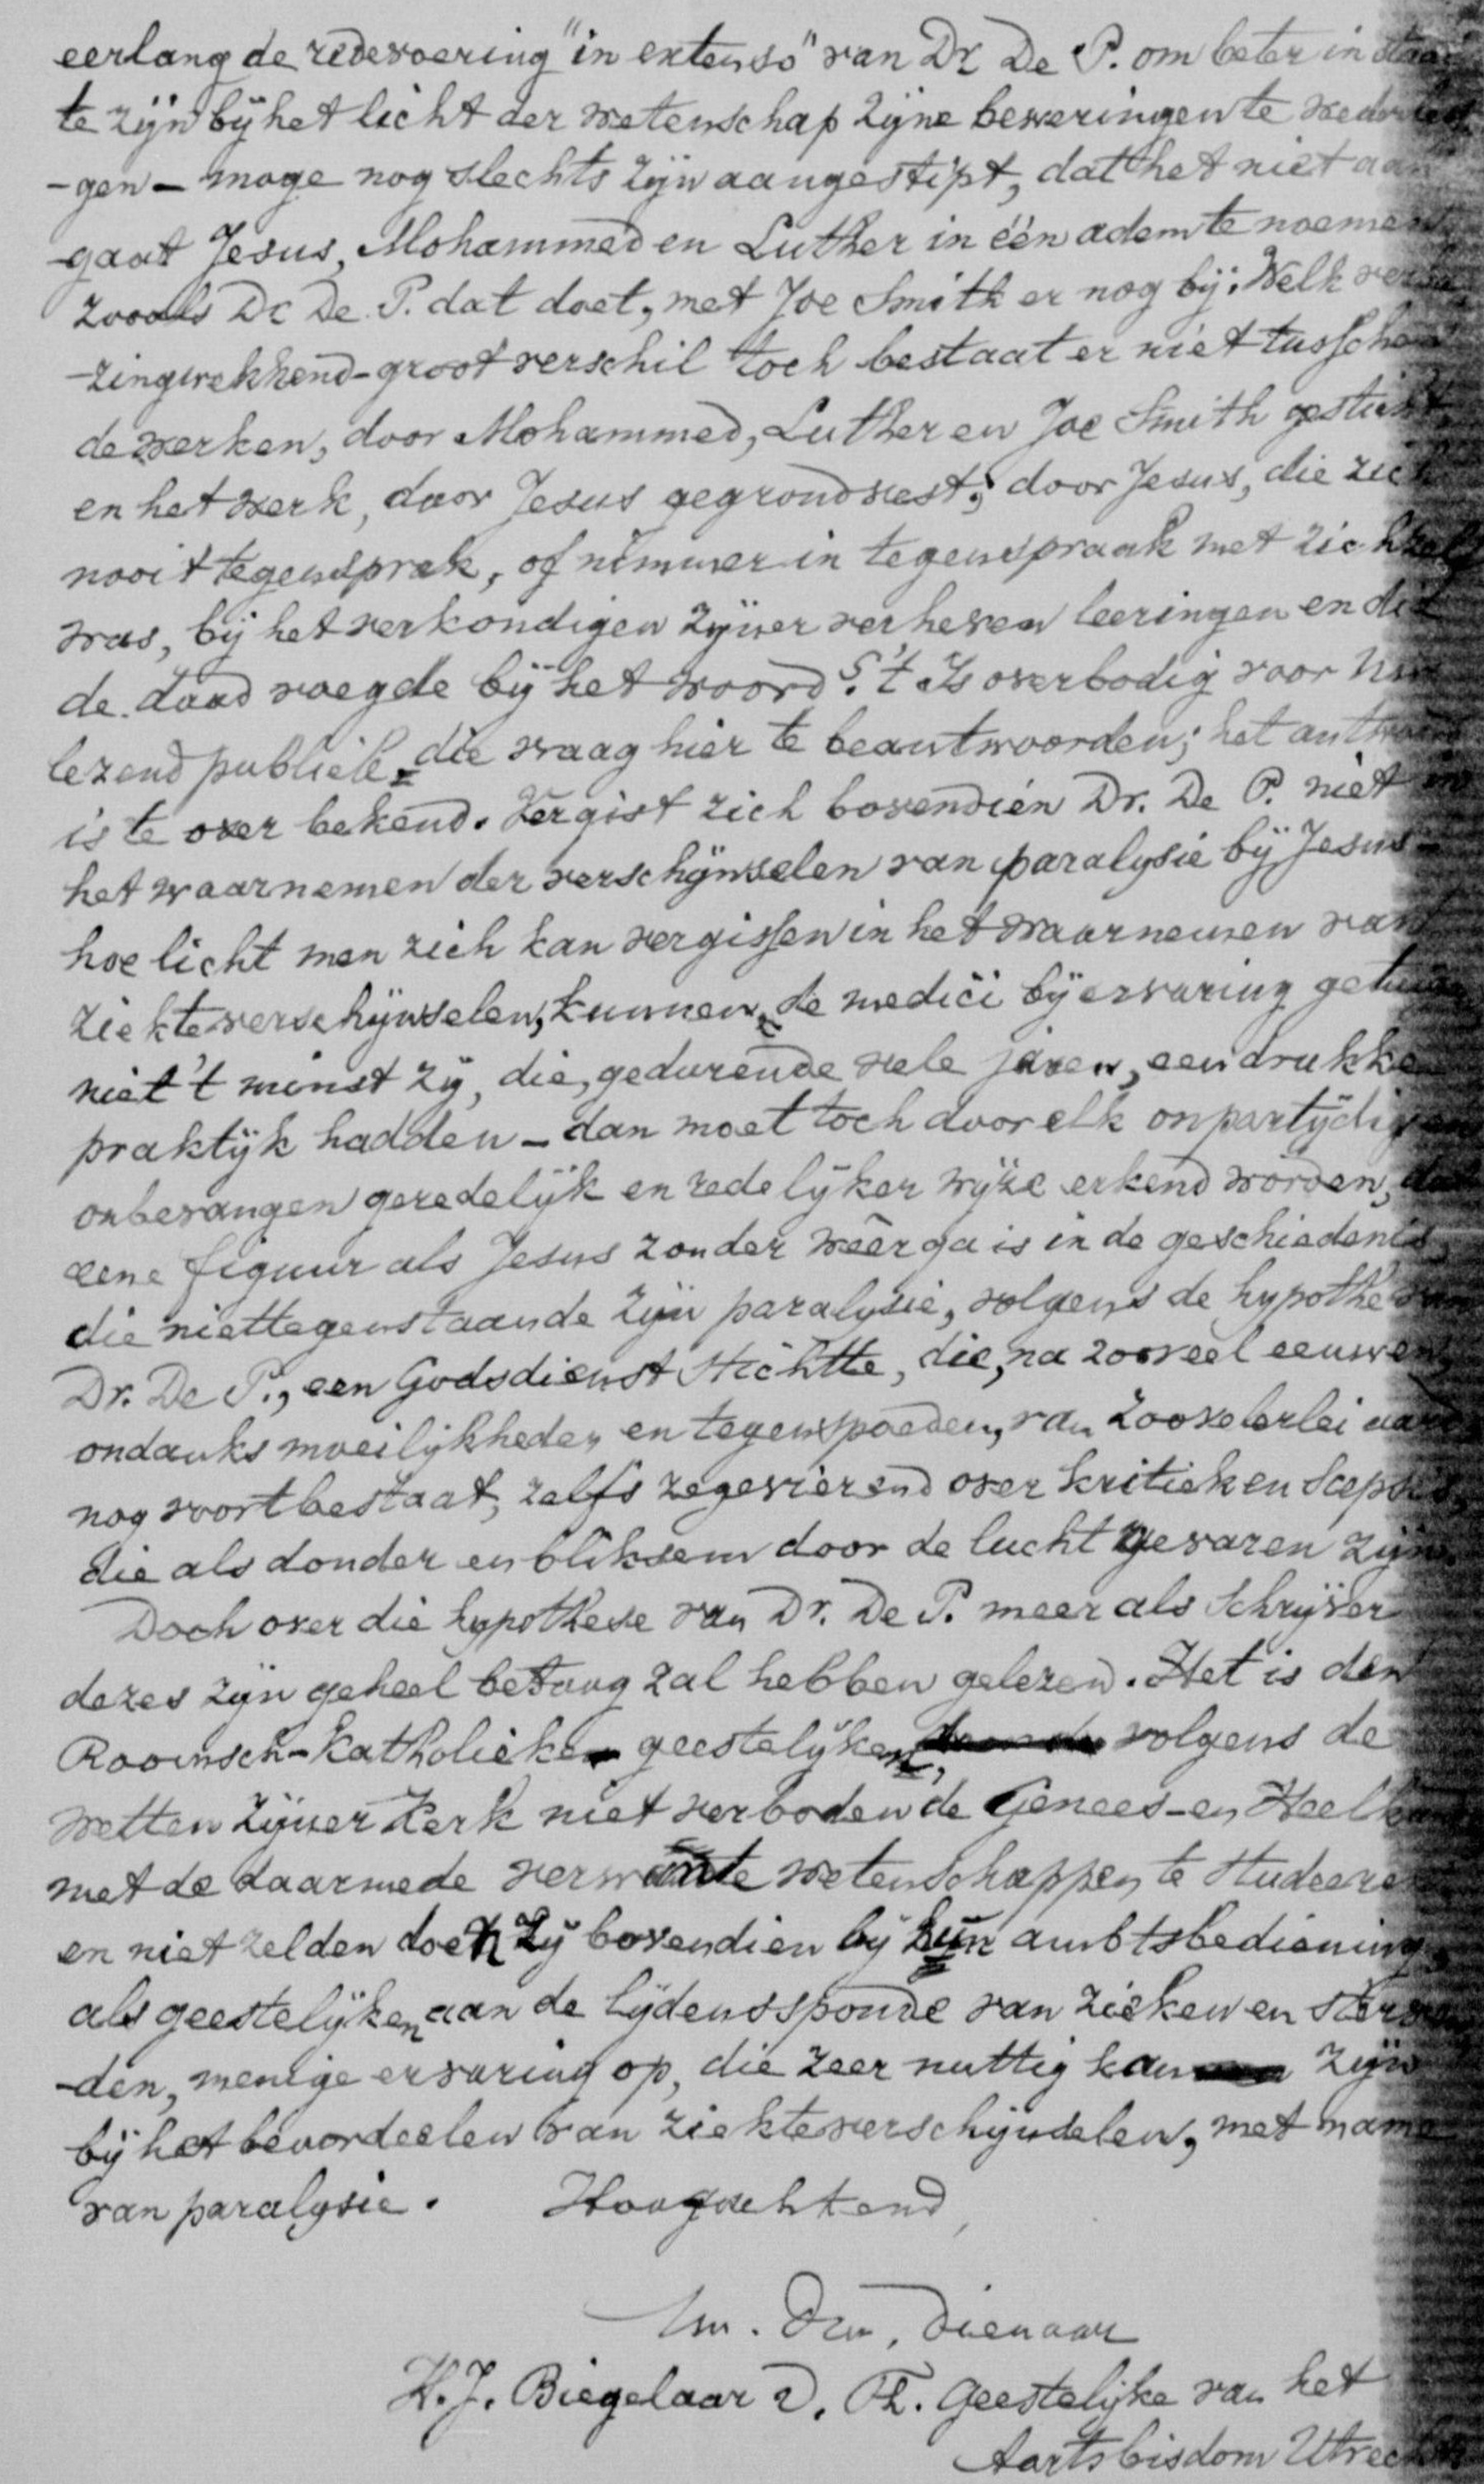 eerlang de redevoering "in extenso" van Dr. De P. om beter in staat
te zijn bij het licht der wetenschap zijne beweringen te wederleg
-gen - moge nog slechts zijn aangestipt, dat het niet aan
-gaat Jesus, Mohammed en Luther in één adem te noemen
zooals Dr De P. dat doet, met Joe Smith er nog bij. Welk verba
-zingwekkend-groot verschil toch bestaat er niet tusschen
de werken, door Mohammed, Luther en Joe Smith gesticht
en het werk, door Jesus gegrondvest; door Jesus, die zich
nooit tegensprak, of nimmer in tegenspraak met zichzelf
was, bij het verkondigen zijner verheven leeringen en die
de daad voegde bij het woord? 't Is overbodig voor Uw
lezend publiek die vraag hier te beantwoorden; het antwoord
is te over bekend. Vergist zich bovendien Dr. De P. niet in
het waarnemen der verschijnselen van paralysie bij Jesus -
hoe licht men zich kan vergissen in het waarnemen van
ziekteverschijnselen, kunnen de medici bij ervaring getuigen
niet 't minst zij, die, gedurende vele jaren, een drukke
praktijk hadden - dan moet toch door elk onpartijdig en
onbevangen geredelijk en redelijker wijze erkend worden, dat
eene figuur als Jesus zonder wêerga is in de geschiedenis,
die niettegenstaande zijn paralysie, volgens de hypothese van
Dr. De P., een Godsdienst stichtte, die, na zooveel eeuwen,
ondanks moeilijkheden en tegenspoeden, van zoovelerlei aard
nog voortbestaat, zelfs zegevierend over kritiek en scepsis,
die als donder en bliksem door de lucht gevaren zijn.
Doch over die hypothese van Dr. De P. meer als Schrijver
dezes zijn geheel betoog zal hebben gelezen. Het is den
Roomsch-Katholieken geestelijken, volgens de
wetten zijner Kerk niet verboden de Genees- en Heelkunde
met de daarmede verwante wetenschappen te studeeren
en niet zelden doen zij bovendien bij hun ambtsbediening,
als geestelijken aan de lijdenssponde van zieken en sterven
-den, menige ervaring op, die zeer nuttig kan zijn
bij het beoordeelen van ziekteverschijnselen, met name
van paralysie. Hoogachtend,
Uw. Dw. Dienaar
H.J. Biegelaar D. Th. Geestelijke van het
Aartsbisdom Utrecht